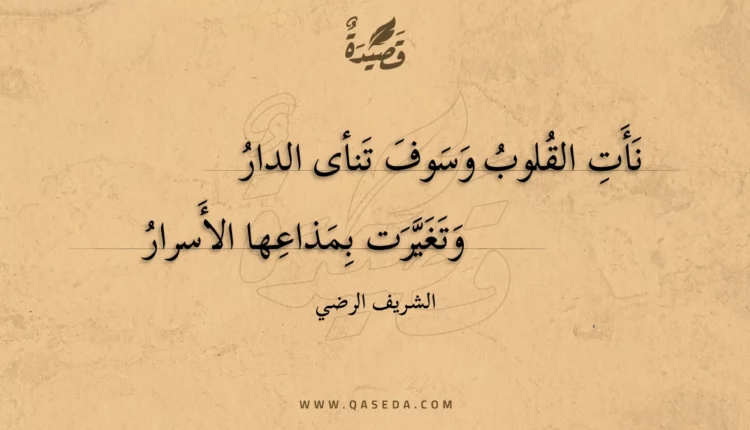 قَصِيْدَةٌ
نَأَتِ القُلوبُ وَسَوفَ تَنأى الدارُ
وَتَغَيَّرَت بِمَذاعِها الأَسرارُ
الشريف الرضي
WWW.QASEDA.COM